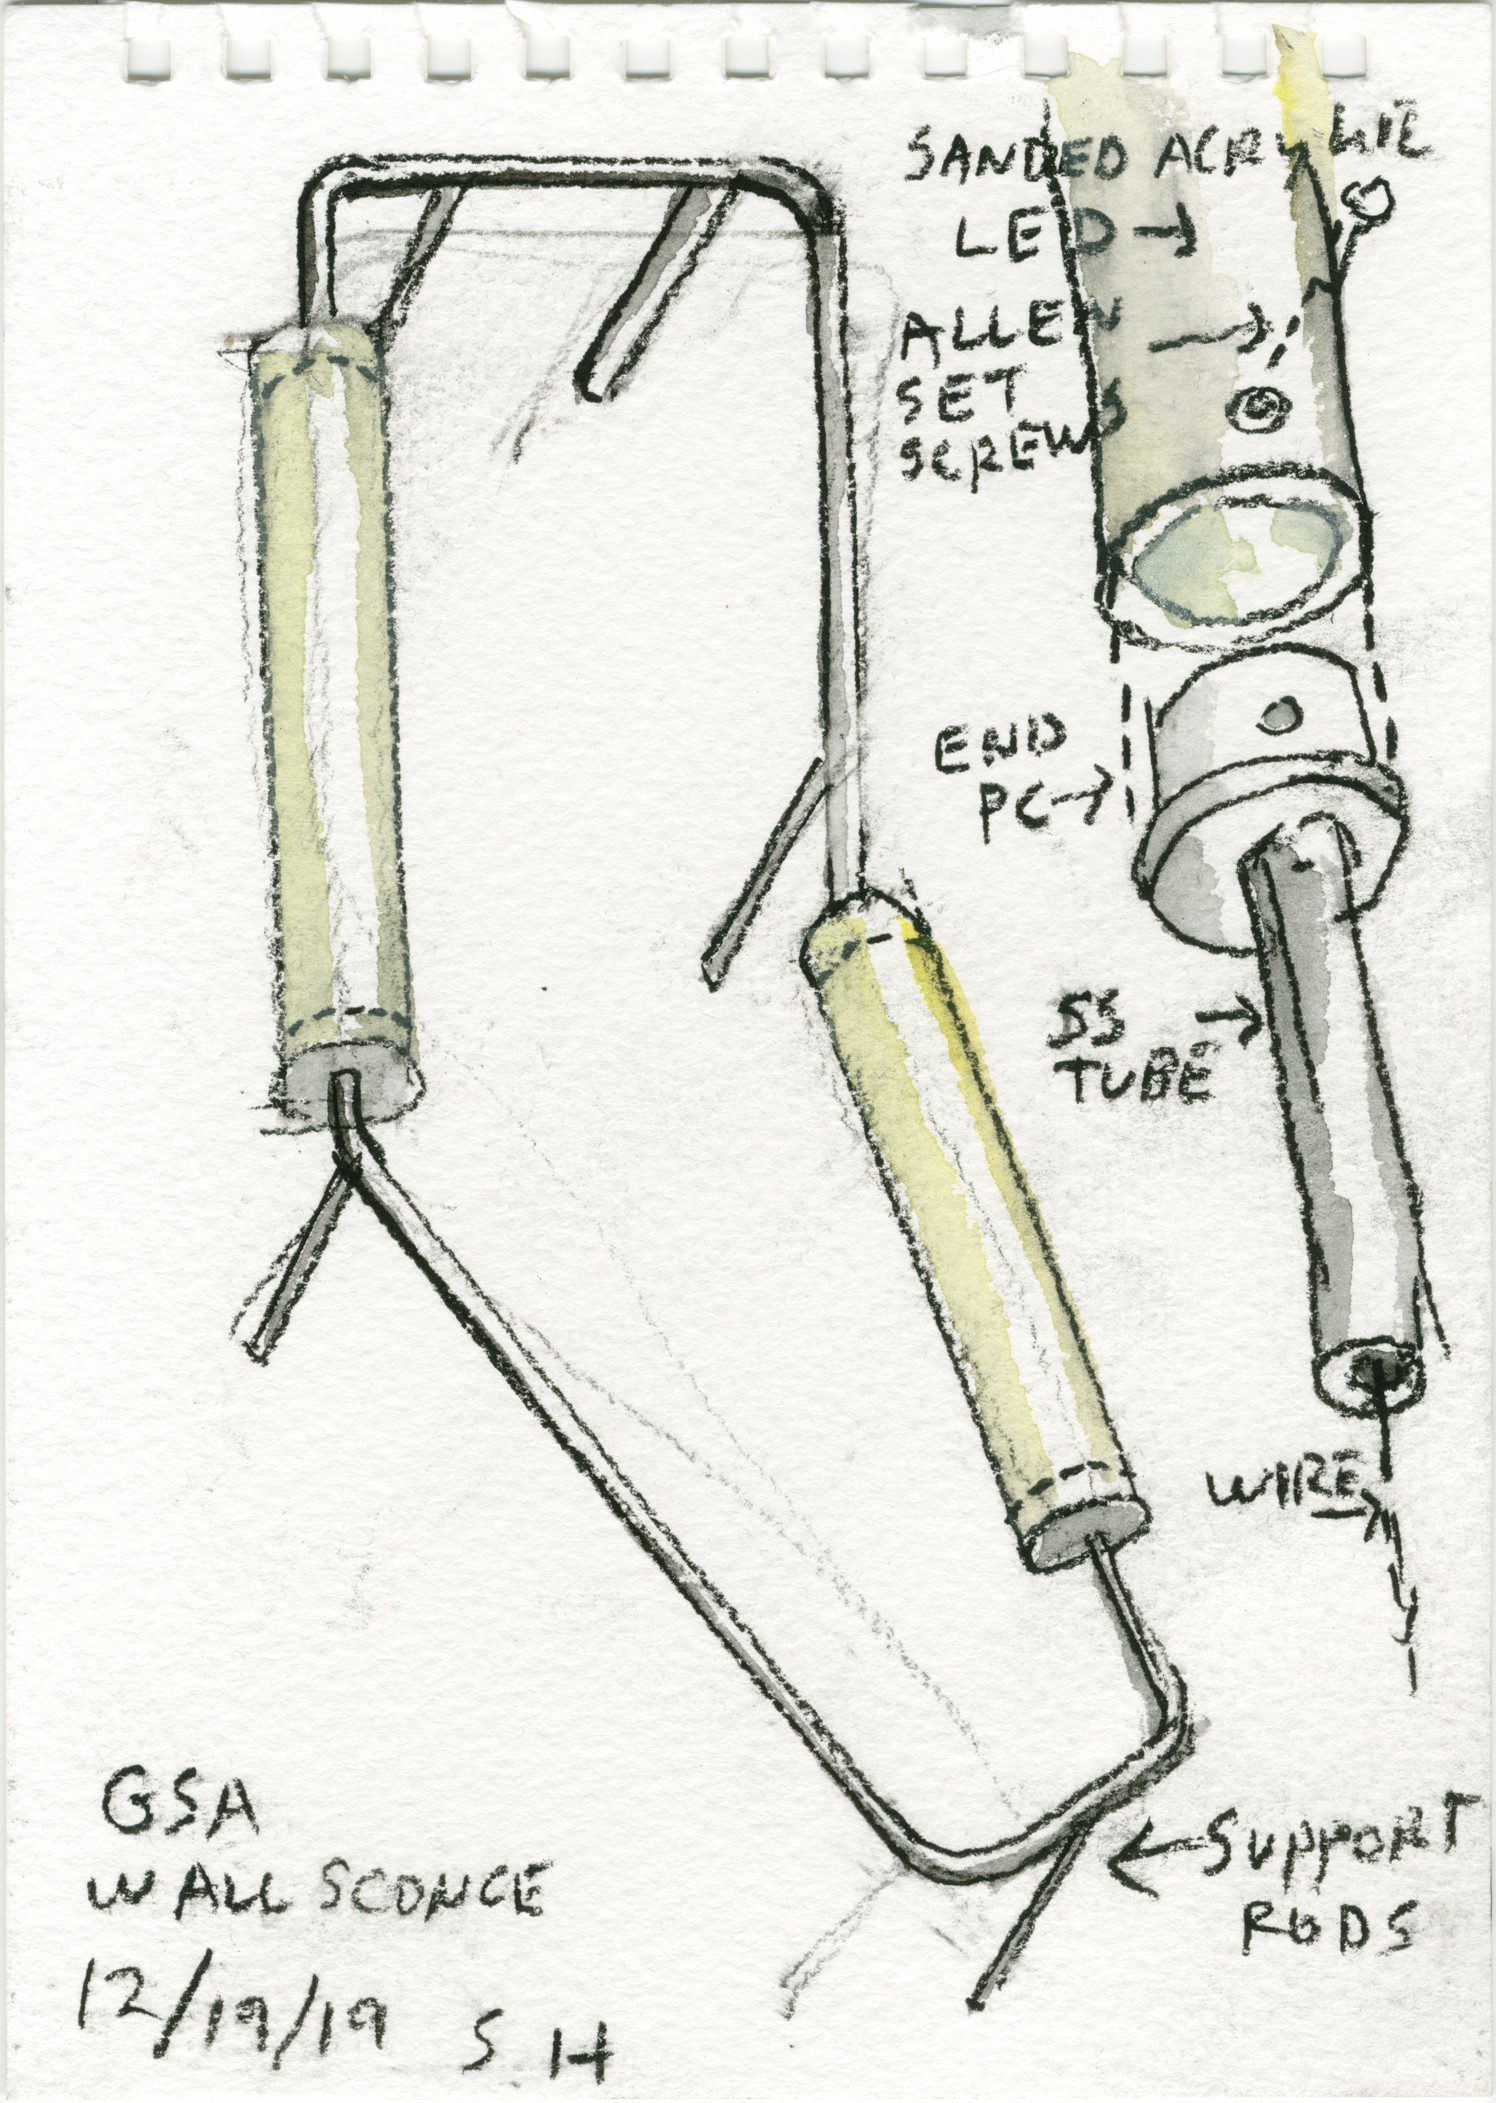 SANDED ACRYLIC
LED
ALLEN
SET
SCREWS
END
PC
SS
TUBE
WIRE
SUPPORT
RODS
GSA
WALL SCONCE
12/19/19 S H